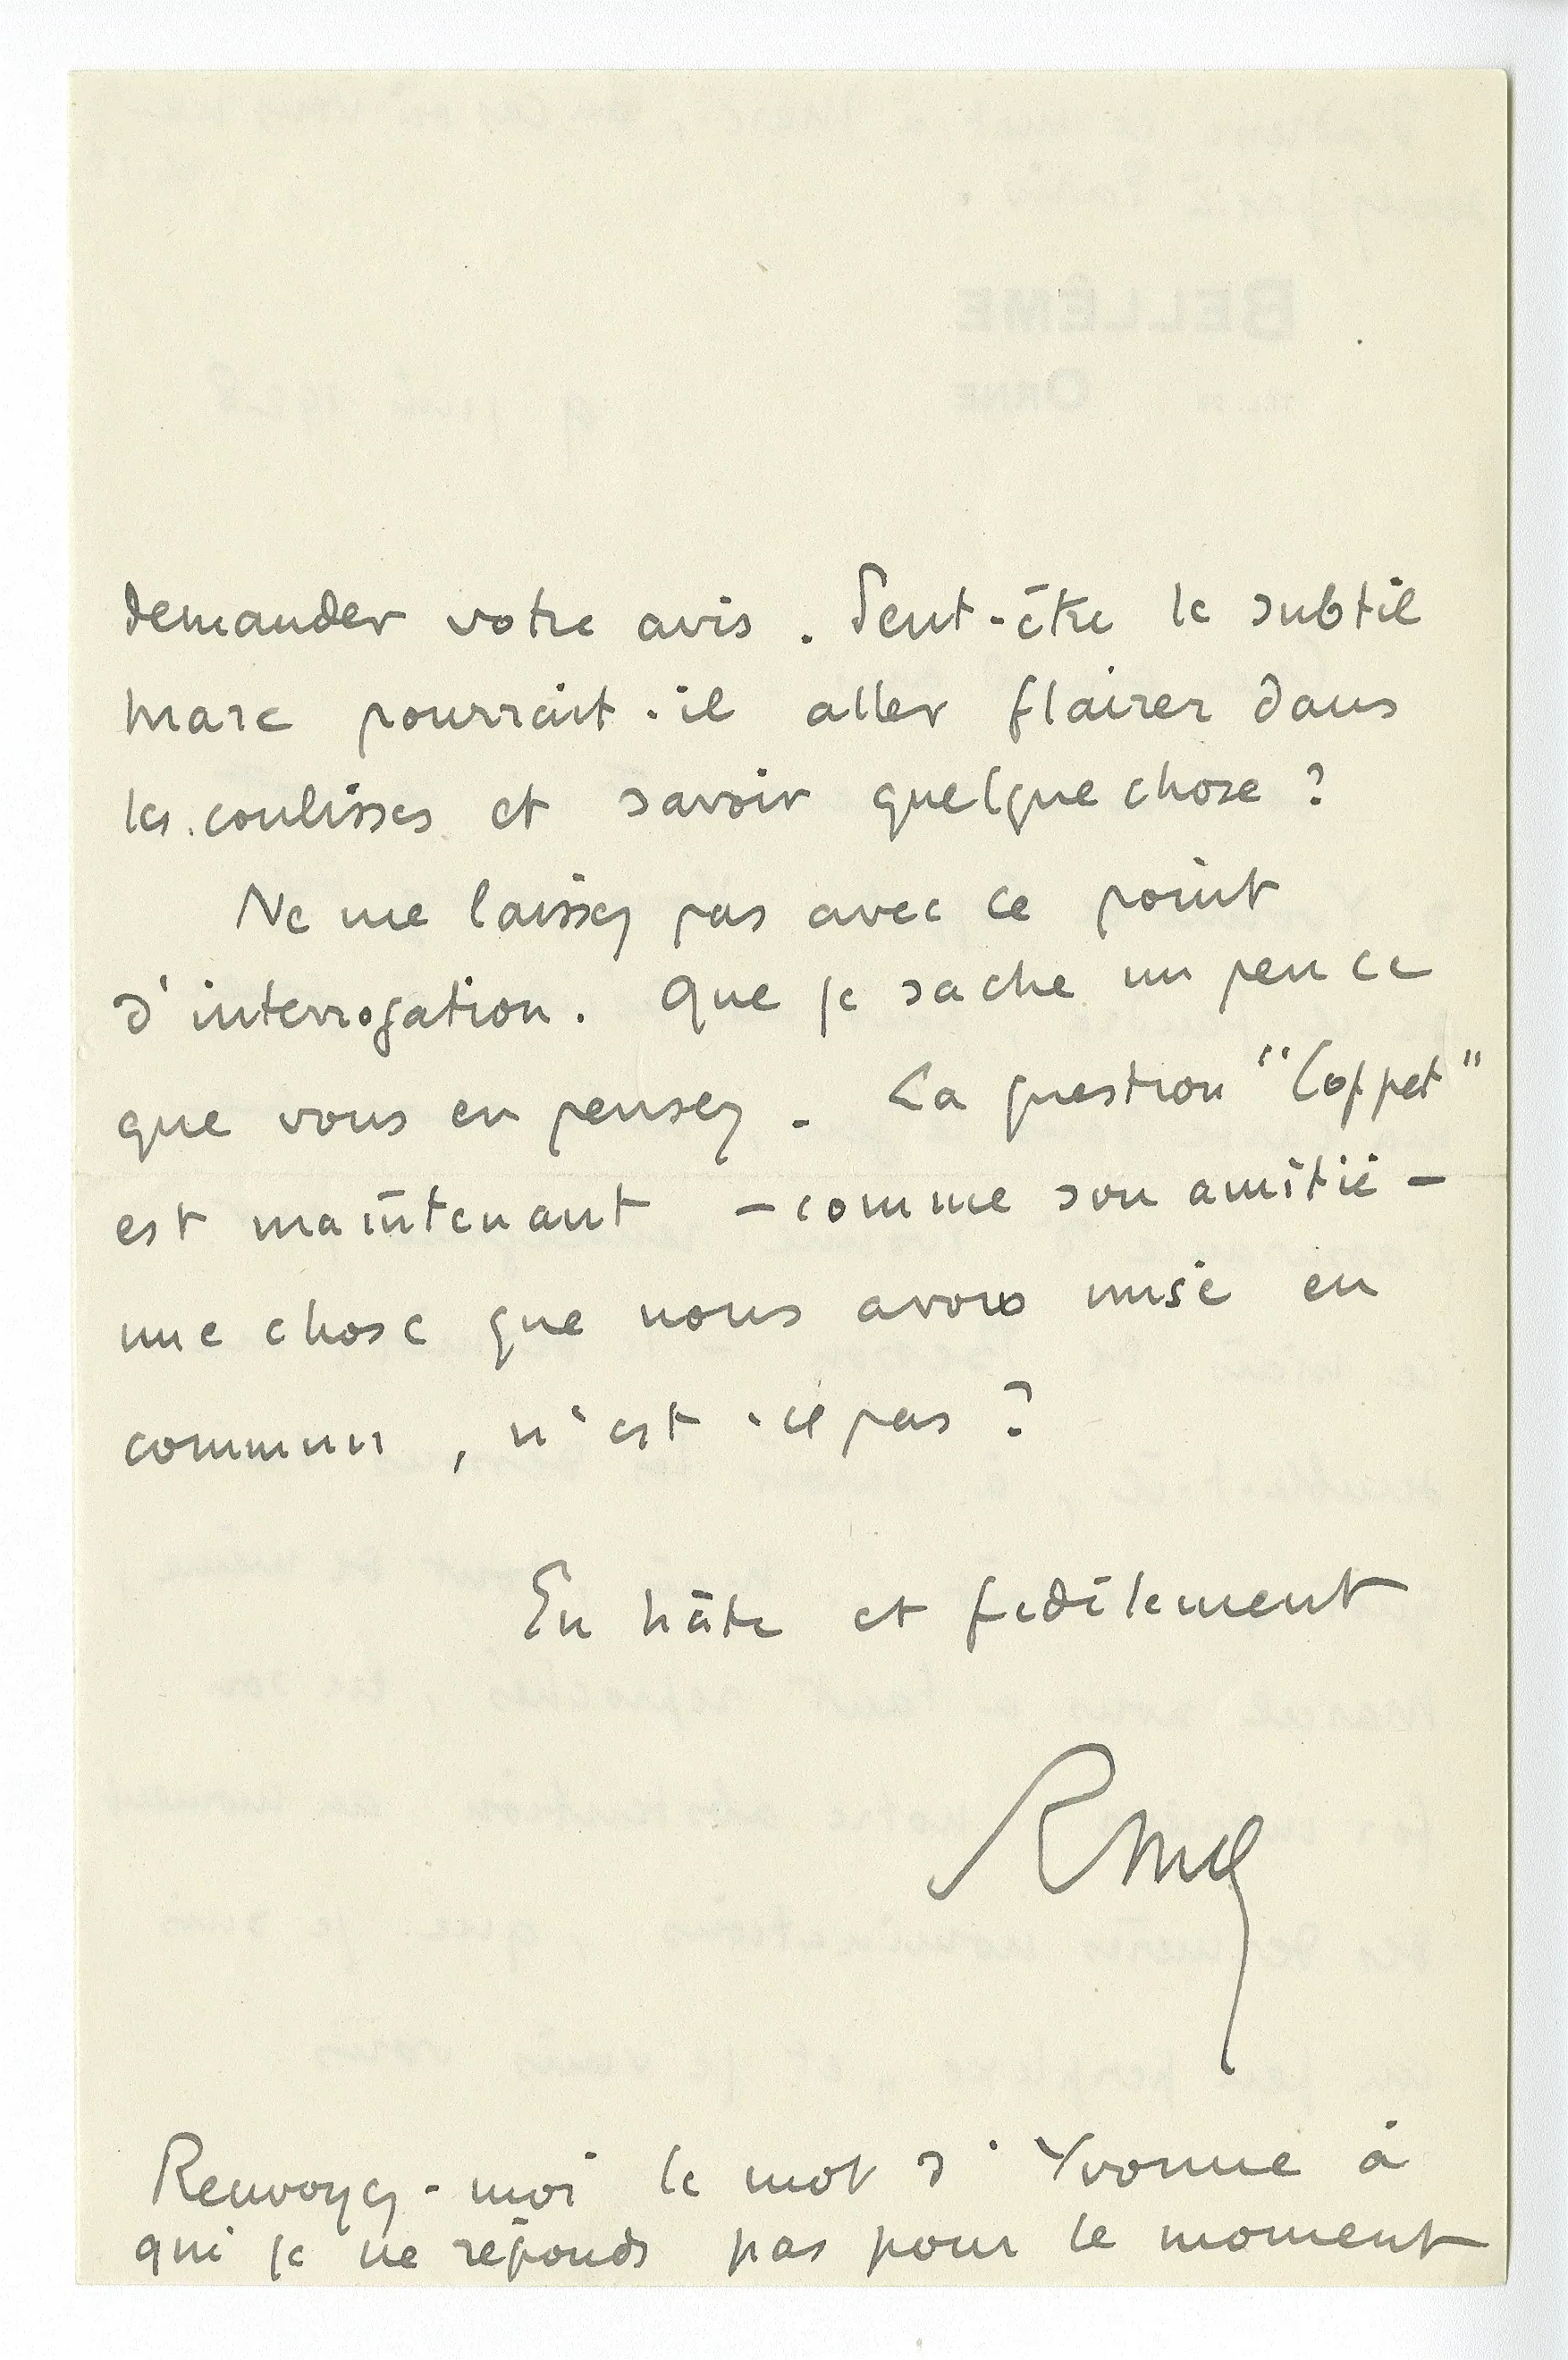 demander votre avis. Peut-être le subtil
Marc pourrait-il aller flairer dans
les coulisses et savoir quelque chose ?
Ne me laissez pas avec ce point
d'interrogation. Que je sache un peu ce
que vous en pensez. La question "Coppet"
est maintenant – comme son amitié –
une chose que nous avons mise en
commun, n'est-ce pas ?
En hâte et fidèlement
RMG
Renvoyez-moi le mot d'Yvonne à
qui je ne réponds pas pour le moment